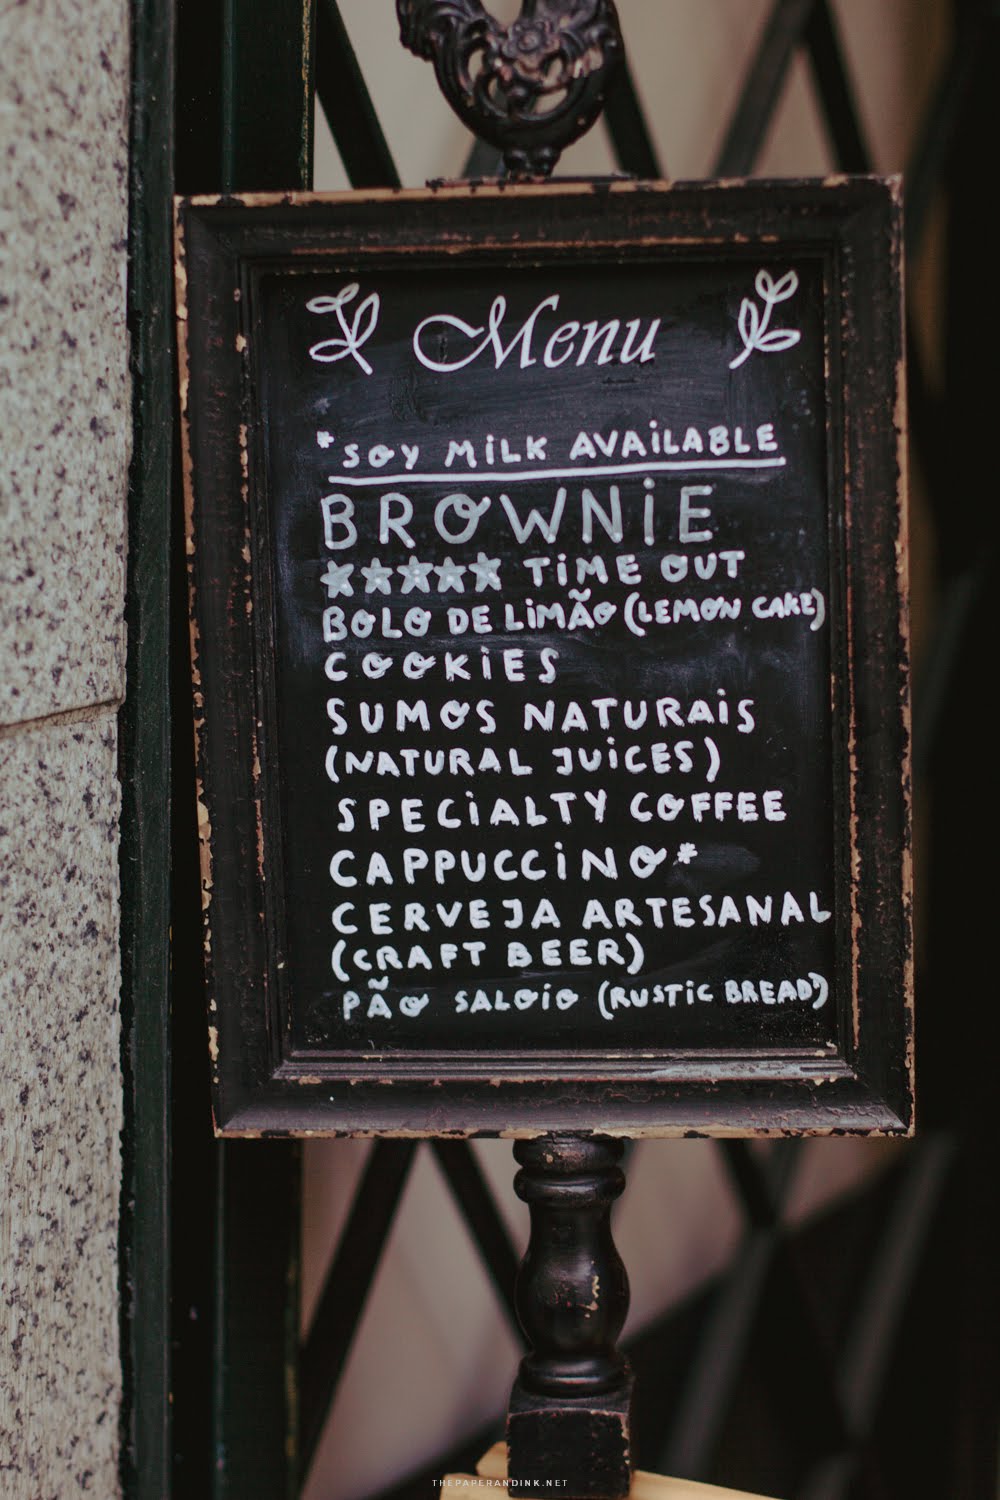 Menu
*SOY MILK AVAILABLE
BROWNIE
★★★★★ TIME OUT
BOLO DE LIMÃO (LEMON CAKE)
COOKIES
SUMOS NATURAIS
(NATURAL JUICES)
SPECIALTY COFFEE
CAPPUCCINO*
CERVEJA ARTESANAL
(CRAFT BEER)
PÃO SALOIO (RUSTIC BREAD)
THEPAPERANDINK.NET